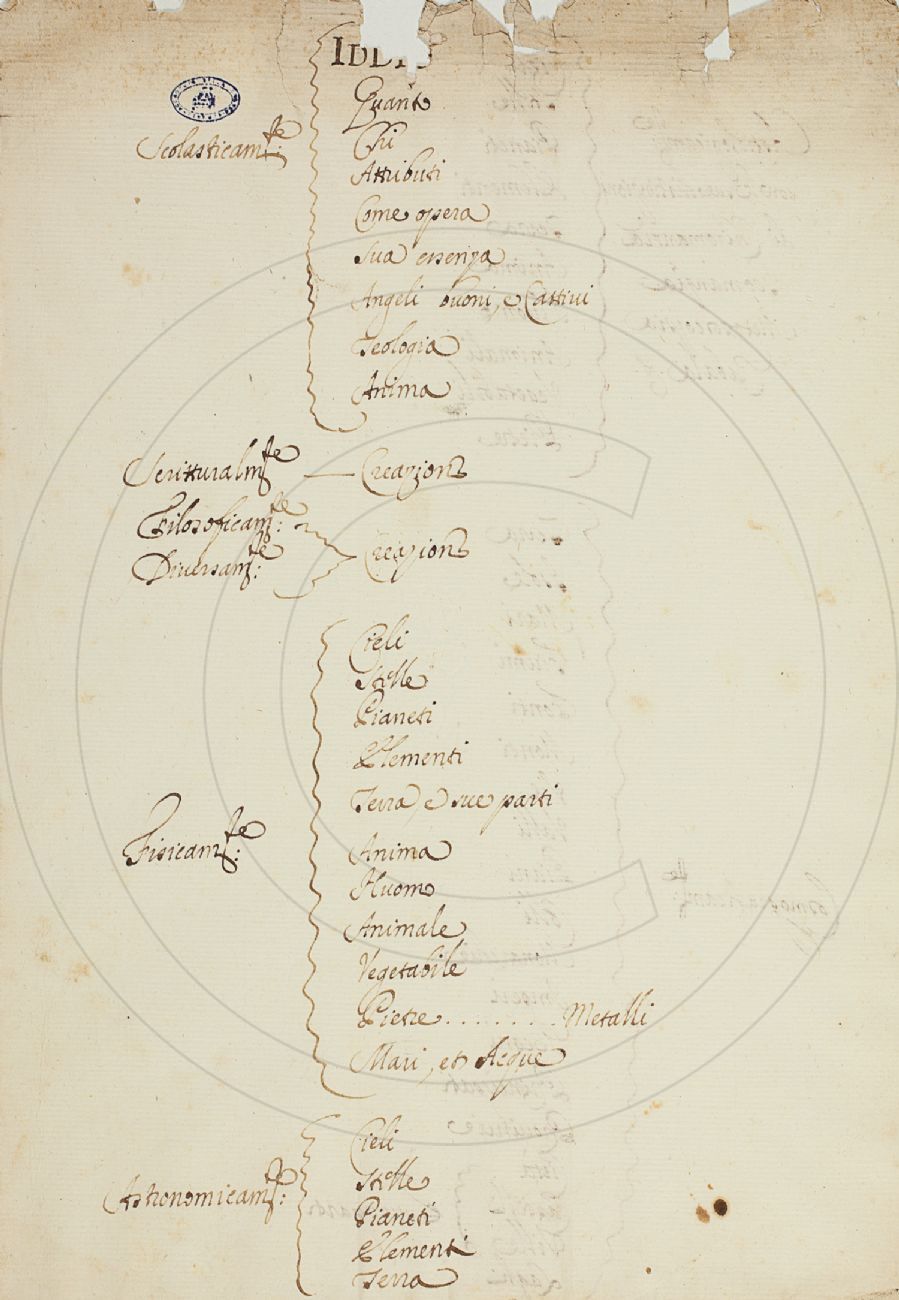 IDDIO
Quanti
Scolasticam:te
Chi
Attributi
Come opera
sua essenza
Angeli buoni, e Cattivi
Teologia
Anima
Scritturalm:te — Creazione
Filosoficam:te
Diversam:te
Creazione
Cieli
Stelle
Pianeti
Elementi
Terra, e sue parti
Fisicam:te
Anima
Huomo
Animale
Vegetabile
Pietre . . . . . . . . Metalli
Mari, et Acque
Cieli
Astronomicam:te
Stelle
Pianeti
Elementi
Terra